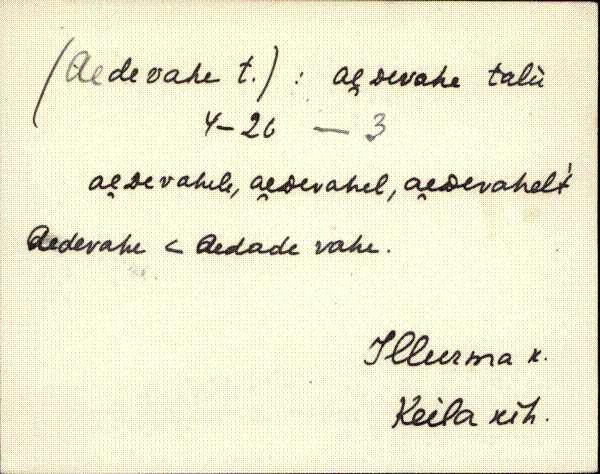 (Aedevahe t.) : ae̯ᴅevahe talù
4-26 — 3
ae̯ᴅevahele, ae̯ᴅevahel, ae̯ᴅevahelt
Aedevahe < Aedade vahe.
Illurma k.
Keila kih.